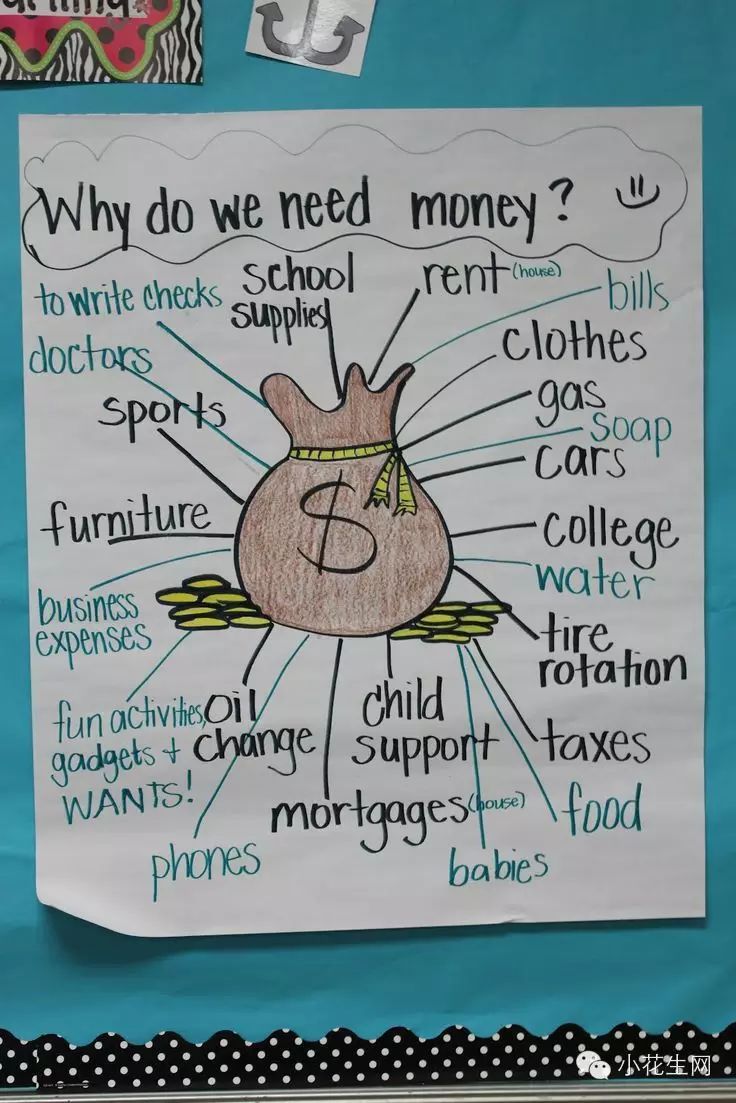 Why do we need money?
to write checks
school
supplies
rent (house)
bills
doctors
clothes
sports
gas
soap
cars
furniture
college
water
business
expenses
tire
rotation
fun activities,
gadgets +
WANTS!
oil
change
child
support
taxes
mortgages (house)
food
phones
babies
小花生网